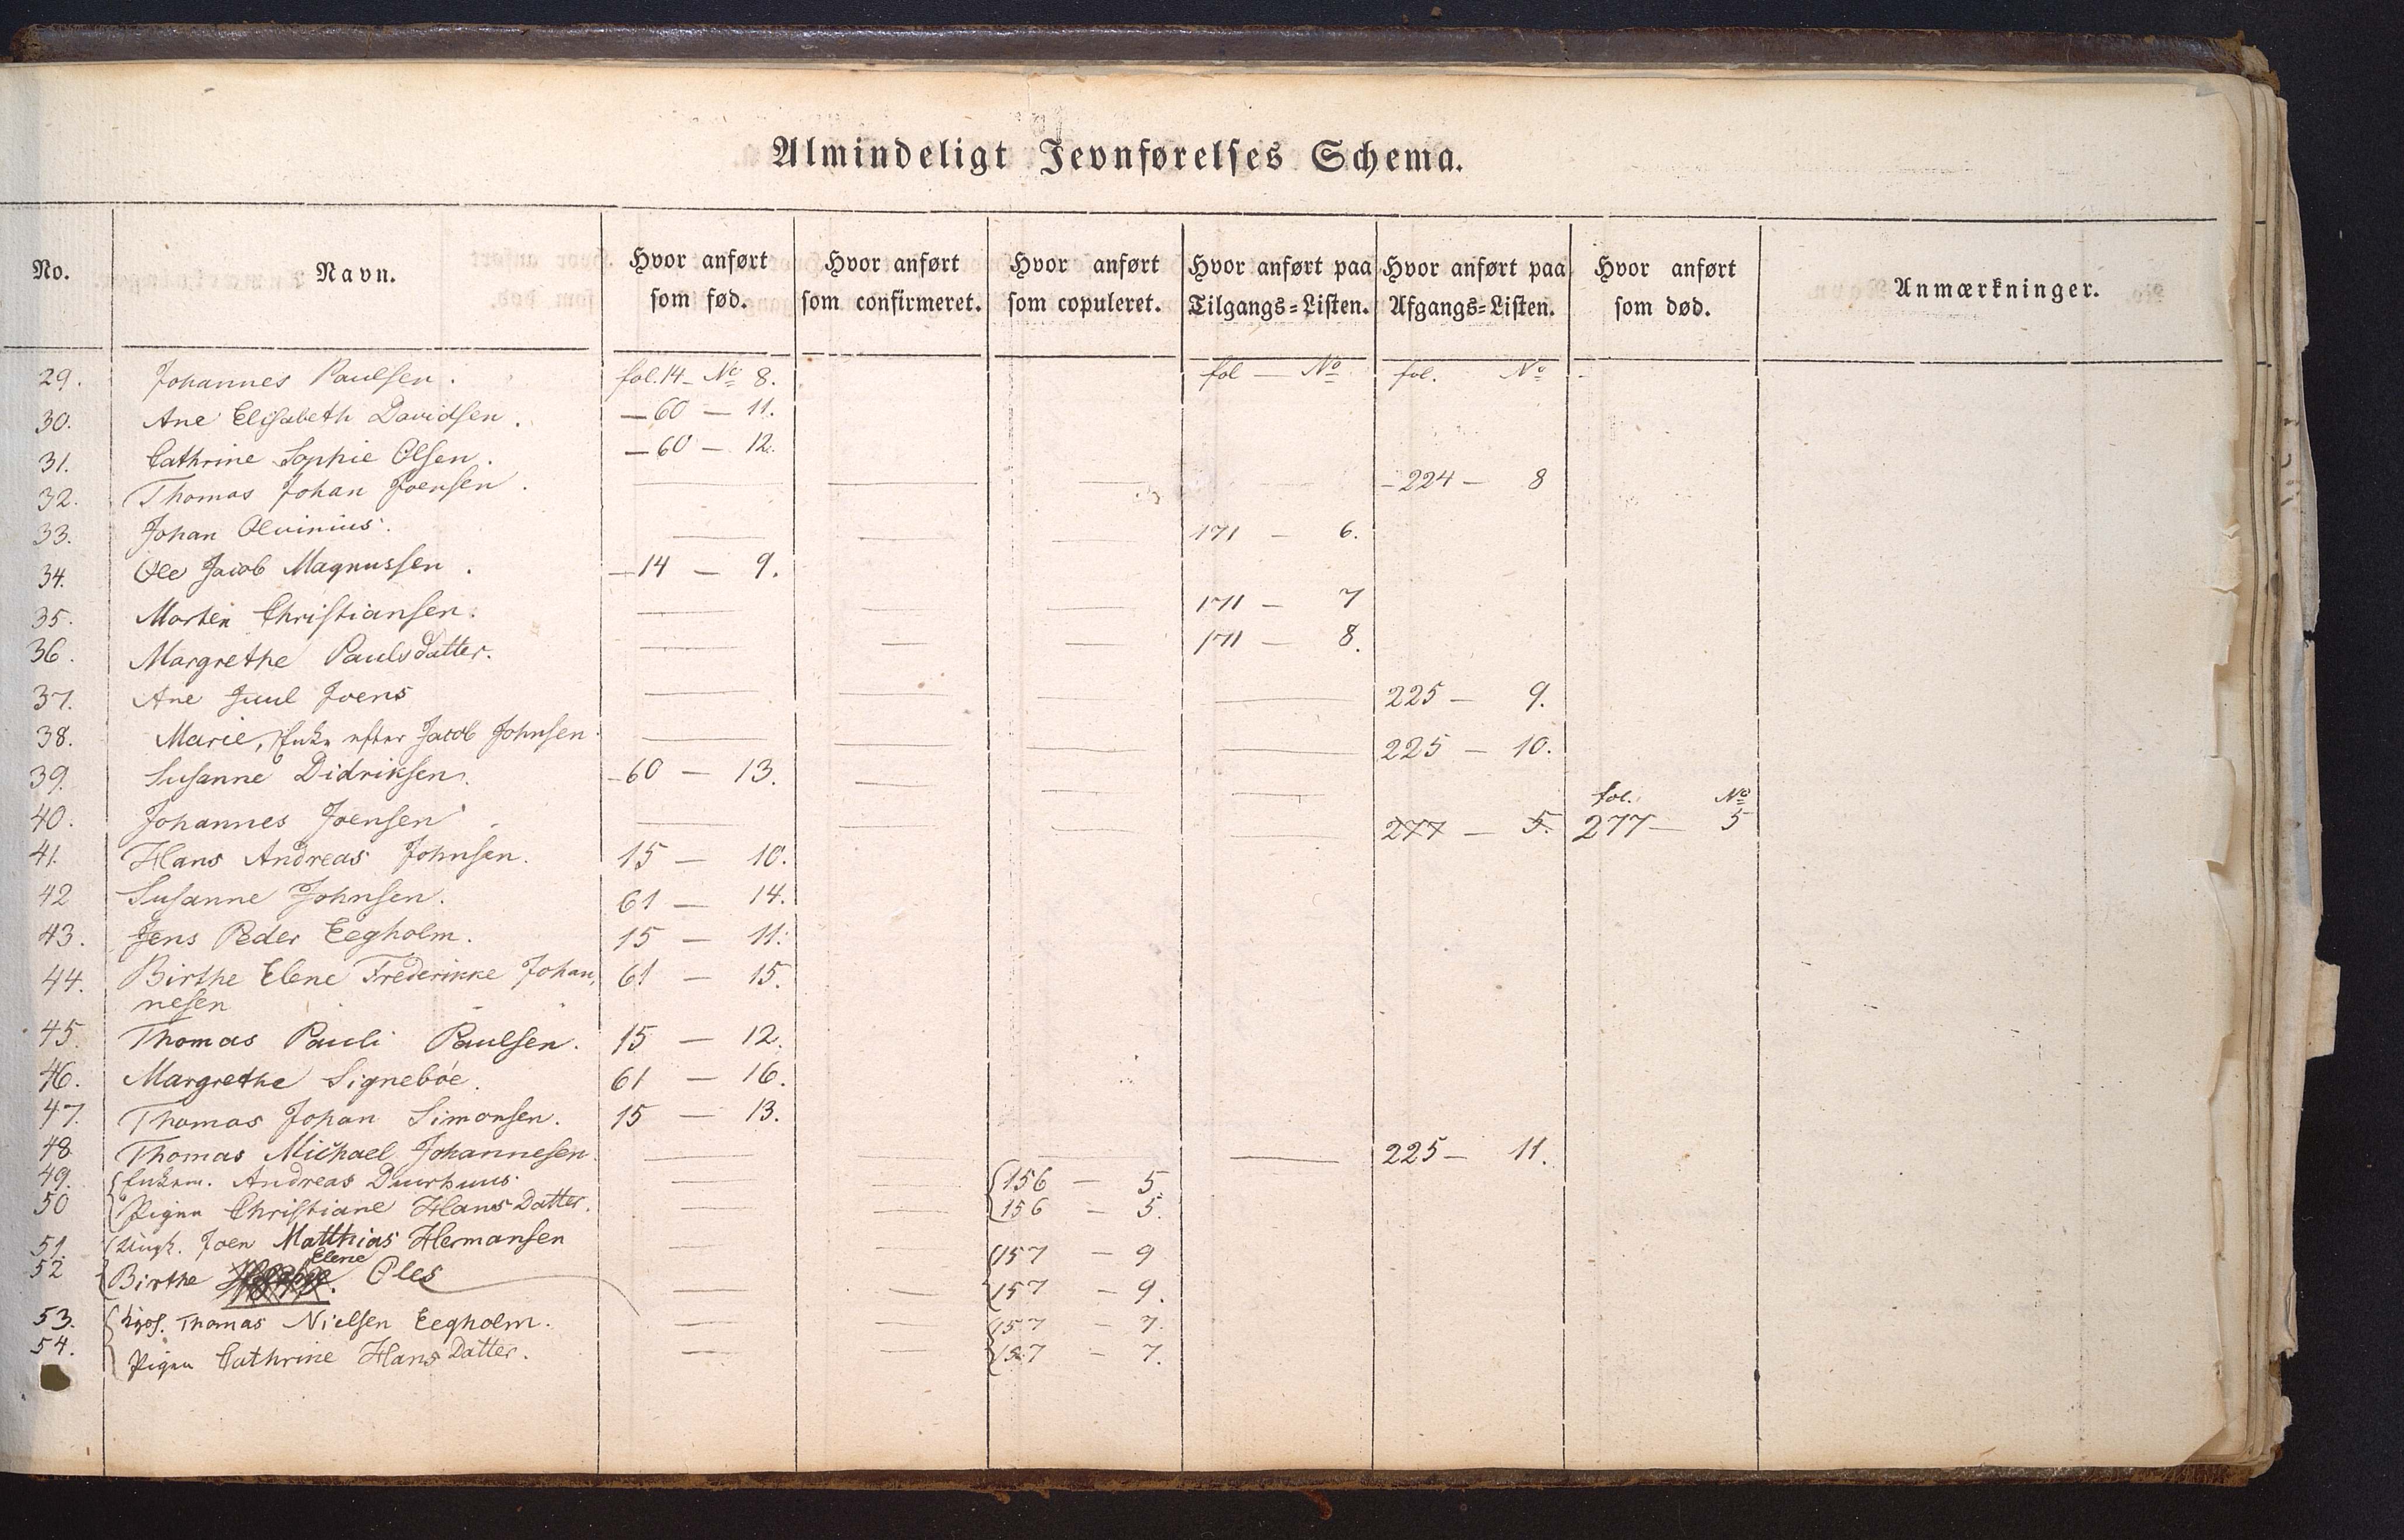 Almindeligt Jevnførelses Schema.
No. Navn. Hvor anført som fød. Hvor anført som confirmeret. Hvor anført som copuleret. Hvor anført paa Tilgangs=Listen. Hvor anført paa Afgangs=Listen. Hvor anført som død. Anmærkninger.
29. Johannes Paulsen. fol. 14 – No 8. fol — No fol. No
30. Ane Elisabeth Davidsen. — 60 — 11.
31. Cathrine Sophie Olsen. — 60 — 12.
32. Thomas Johan Joensen. — — — — – 224 – 8
33. Johan Olvinius. — — — 171 – 6.
34. Ole Jacob Magnussen. — 14 — 9.
35. Morten Christiansen. — — — 171 — 7
36. Margrethe Paulsdatter. — — — 171 — 8.
37. Ane Juul Joens — — — 225 — 9.
38. Marie, Enke efter Jacob Johnsen — — — — 225 — 10.
39. Susanne Didriksen. – 60 — 13. — — —
fol. No
40. Johannes Joensen — — — — 277 — 5. 277 — 5
41. Hans Andreas Johnsen. 15 — 10.
42 Susanne Johnsen. 61 — 14.
43. Jens Peder Eegholm. 15 — 11.
44. Birthe Elene Frederikke Johan, 61 — 15.
nesen
45. Thomas Pauli Paulsen. 15 — 12.
46. Margrethe Signebøe. 61 — 16.
47. Thomas Johan Simonsen. 15 — 13.
48. Thomas Michael Johannesen — — — — 225 — 11.
49. Enkem. Andreas Duurhuus. — — 156 — 5.
50 Pigen Christiane Hans Datter. — — 156 – 5.
51. Ungk. Joen Matthias Hermansen — — 157 – 9
Elene
52 Birthe Oles — — 157 – 9.
53. Thomas Nielsen Eegholm. — — 157 – 7.
54. Pigen Cathrine Hans Datter. — — 157 – 7.